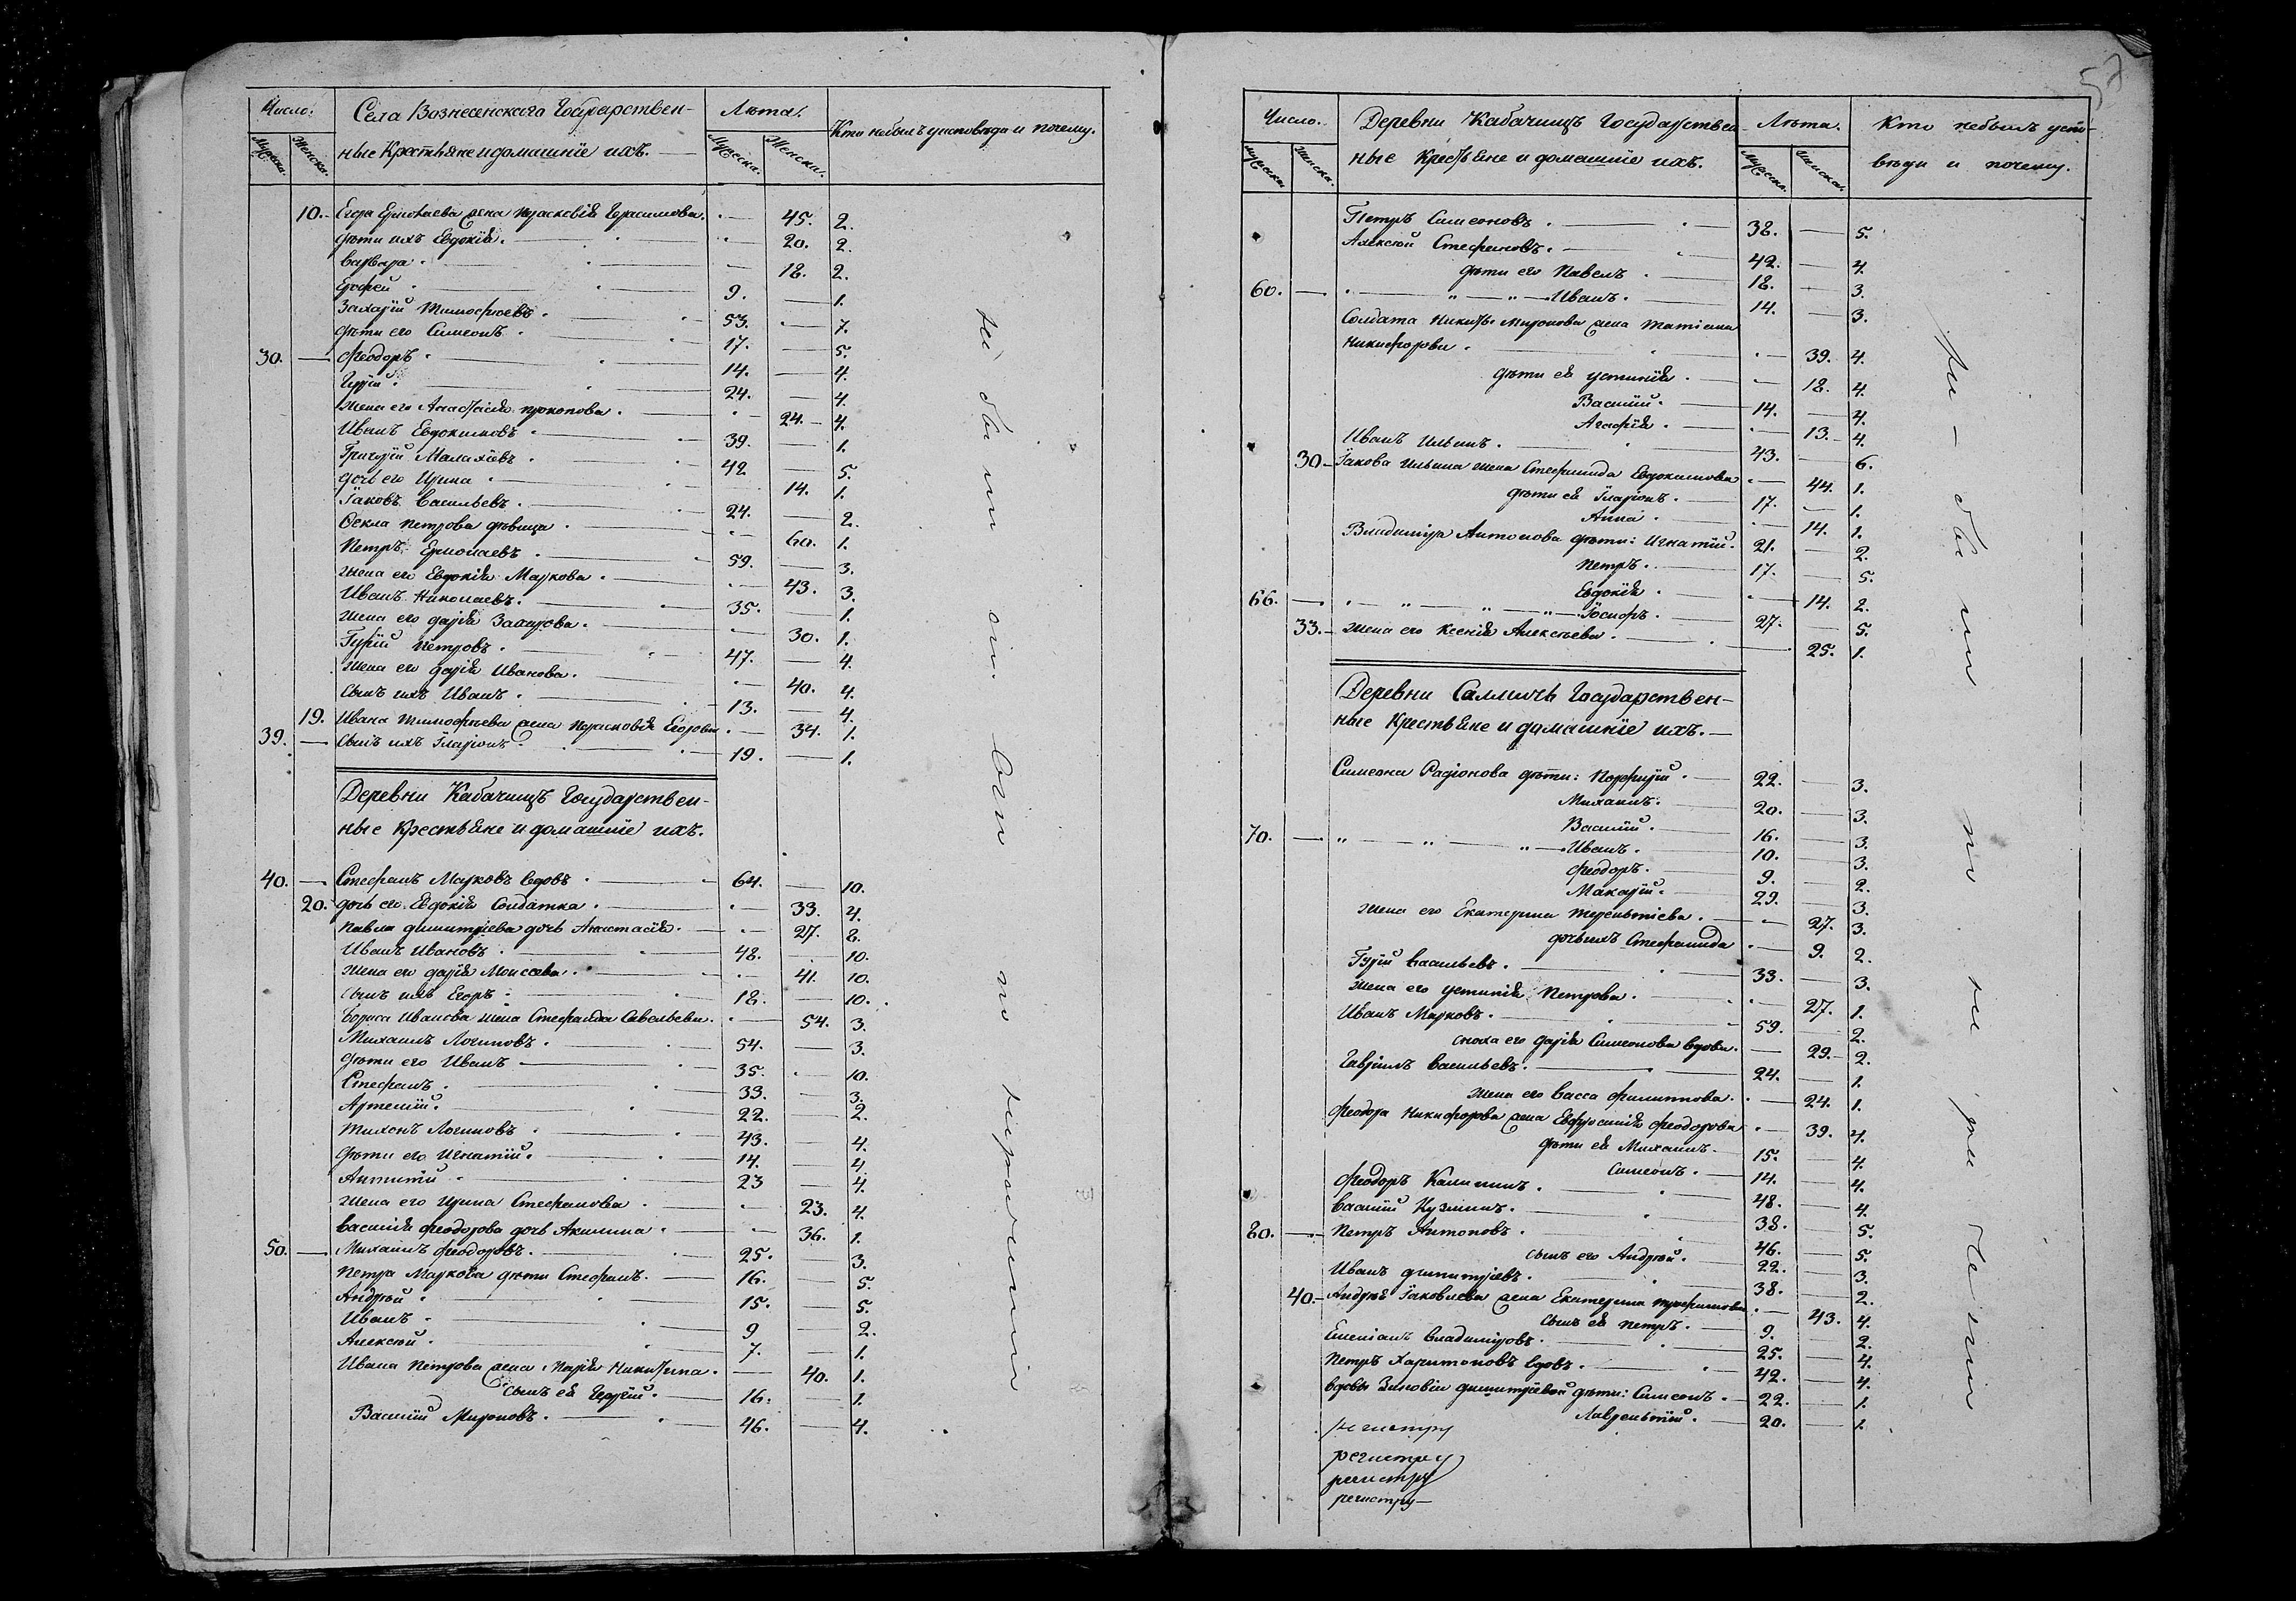 57
Число.
Села Вознесенскаго Государствен-
Лѣта.
Кто небылъ уисповѣди и почему.
Мужеска.
Женска.
ные Крестьяне и домашніе ихъ.
Мужеска.
Женска.
10. Егора Ермолаева жена Параскевія Герасимова. 45. 2.
дѣти ихъ Евдокія. 20. 2.
Варвара. 18. 2.
Ерофей 9. 1.
Захарій Тимофеевъ. 53. 7.
дѣти его Симеонъ. 17. 5.
30. Феодоръ. 14. 4.
Гурій. 24. 4.
жена его Анастасія Прокопова. 24. 4.
Иванъ Евдокимовъ. 39. 1.
Григорій Малахіевъ. 42 5.
дочь его Ирина 14. 1.
Іаковъ Васильевъ. 24. 2.
Ѳекла Петрова дѣвица. 60. 1.
Петръ Ермолаевъ. 59. 3.
жена его Евдокія Маркова. 43. 3.
Иванъ Николаевъ. 35. 1.
жена его Дарія Захарова. 30. 1.
Гурій Петровъ. 47. 4.
жена его Дарія Иванова. 40. 4.
сынъ ихъ Иванъ. 13. 4.
19. Ивана Тимофѣева жена Парасковія Егорова 34. 1.
39. сынъ ихъ Иларіонъ. 19. 1.
Деревни Кабачищъ Государствен-
ные Крестьяне и домашніе ихъ.
40. Стефанъ Марковъ вдовъ 64. 10.
20. дочь его Евдокія Солдатка. 33. 4.
Павла Димитріева дочь Анастасія. 27. 8.
Иванъ Ивановъ. 48. 10.
жена его Дарія Моисеева. 41. 10.
сынъ ихъ Егоръ. 18. 10.
Бориса Иванова жена Стефанида Савельева. 54. 3.
Михаилъ Логиновъ. 54. 3.
дѣти его Иванъ 35. 10.
Стефанъ. 33. 3.
Артемій. 22. 2.
Тихонъ Логиновъ. 43. 4.
дѣти его Игнатій. 14. 4.
Антипій 23 4.
жена его Ирина Стефанова. 23. 4.
Василія Феодорова дочь Акилина. 36. 1.
50. Михаилъ Феодоровъ. 25. 3.
Петра Маркова дѣти Стефанъ. 16. 5.
Андрей. 15. 5.
Иванъ. 9 2.
Алексѣй. 7. 1.
Ивана Петрова жена Марія Никитина. 40. 1.
сынъ ея Георгій. 16. 1.
Василій Мироновъ. 46. 4.
Число.
Деревни Кабачищъ Государствен-
Лѣта.
Кто небылъ уиспо-
мужеска.
женска.
ные Крестьяне и домашніе ихъ.
Мужеска.
женска.
вѣди и почему.
Петръ Симеоновъ. 38. 5.
Алексѣй Стефановъ. 42. 4.
дѣти его Павелъ. 18. 3.
60. Иванъ. 14. 3.
Солдата Никиты Миронова жена Татіана
Никифорова. 39. 4.
дѣти ея Устинія. 18. 4.
Василій. 14. 4.
Агафія. 13. 4.
Иванъ Ильинъ. 43. 6.
30. Іакова Ильина жена Стефанида Евдокимова 44. 1.
дѣти ея Иларіонъ. 17. 1.
Анна. 14. 1.
Владиміра Антонова дѣти: Игнатій. 21. 2.
Петръ. 17. 5.
Евдокія. 14. 2.
66. Іосифъ. 27. 5.
33. жена его Ксенія Алексѣева. 25. 1.
Деревни Саллочь Государствен-
ные Крестьяне и домашніе ихъ.
Симеона Радіонова дѣти: Порфирій. 22. 3.
Михаилъ. 20. 3.
Василій. 16. 3.
70. Иванъ. 10. 3.
Феодоръ. 9. 2.
Макарій. 29. 3.
жена его Екатерина Терентіева. 27. 3.
дочь ихъ Стефанида 9. 2.
Гурій Васильевъ. 33. 3.
жена его Устинія Петрова. 27. 1.
Иванъ Марковъ. 59. 2.
сноха его Дарія Симеонова вдова. 29. 2.
Гавріилъ Васильевъ. 24. 1.
жена его Васса Филиппова. 24. 1.
Феодора Никифорова жена Евфросинія Феодорова 39. 4.
дѣти ея Михаилъ. 15. 4.
Симеонъ. 14. 4.
Феодоръ Калининъ. 48. 4.
Василій Кузминъ. 38. 5.
80. Петръ Антоновъ. 46. 5.
сынъ его Андрей. 22. 3.
Иванъ Димитріевъ. 38. 2.
40. Андрея Іаковлева жена Екатерина Трофимова 43. 4.
сынъ ея Петръ. 9. 2.
Емеліанъ Владиміровъ. 25. 4.
Петръ Харитоновъ вдовъ. 42. 4.
вдовы Зиновіи Димитріевой дѣти: Симеонъ. 22. 1.
Лаврентій. 20. 1.
регистру
регистру
регистру
регистру